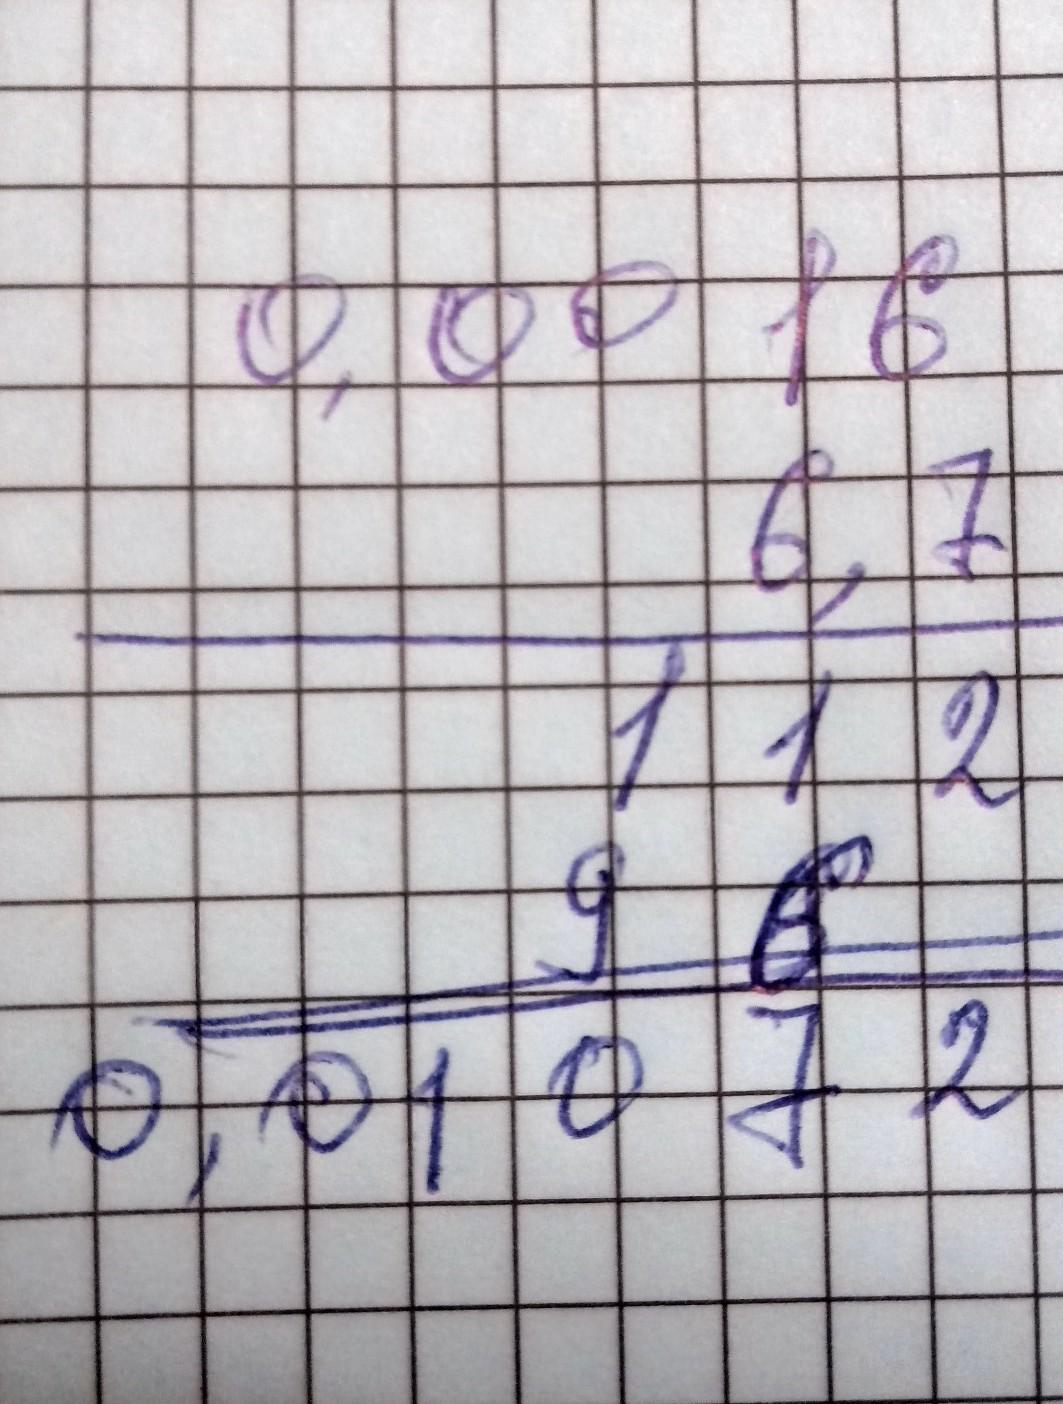 0,0016
6,7
112
96
0,01072